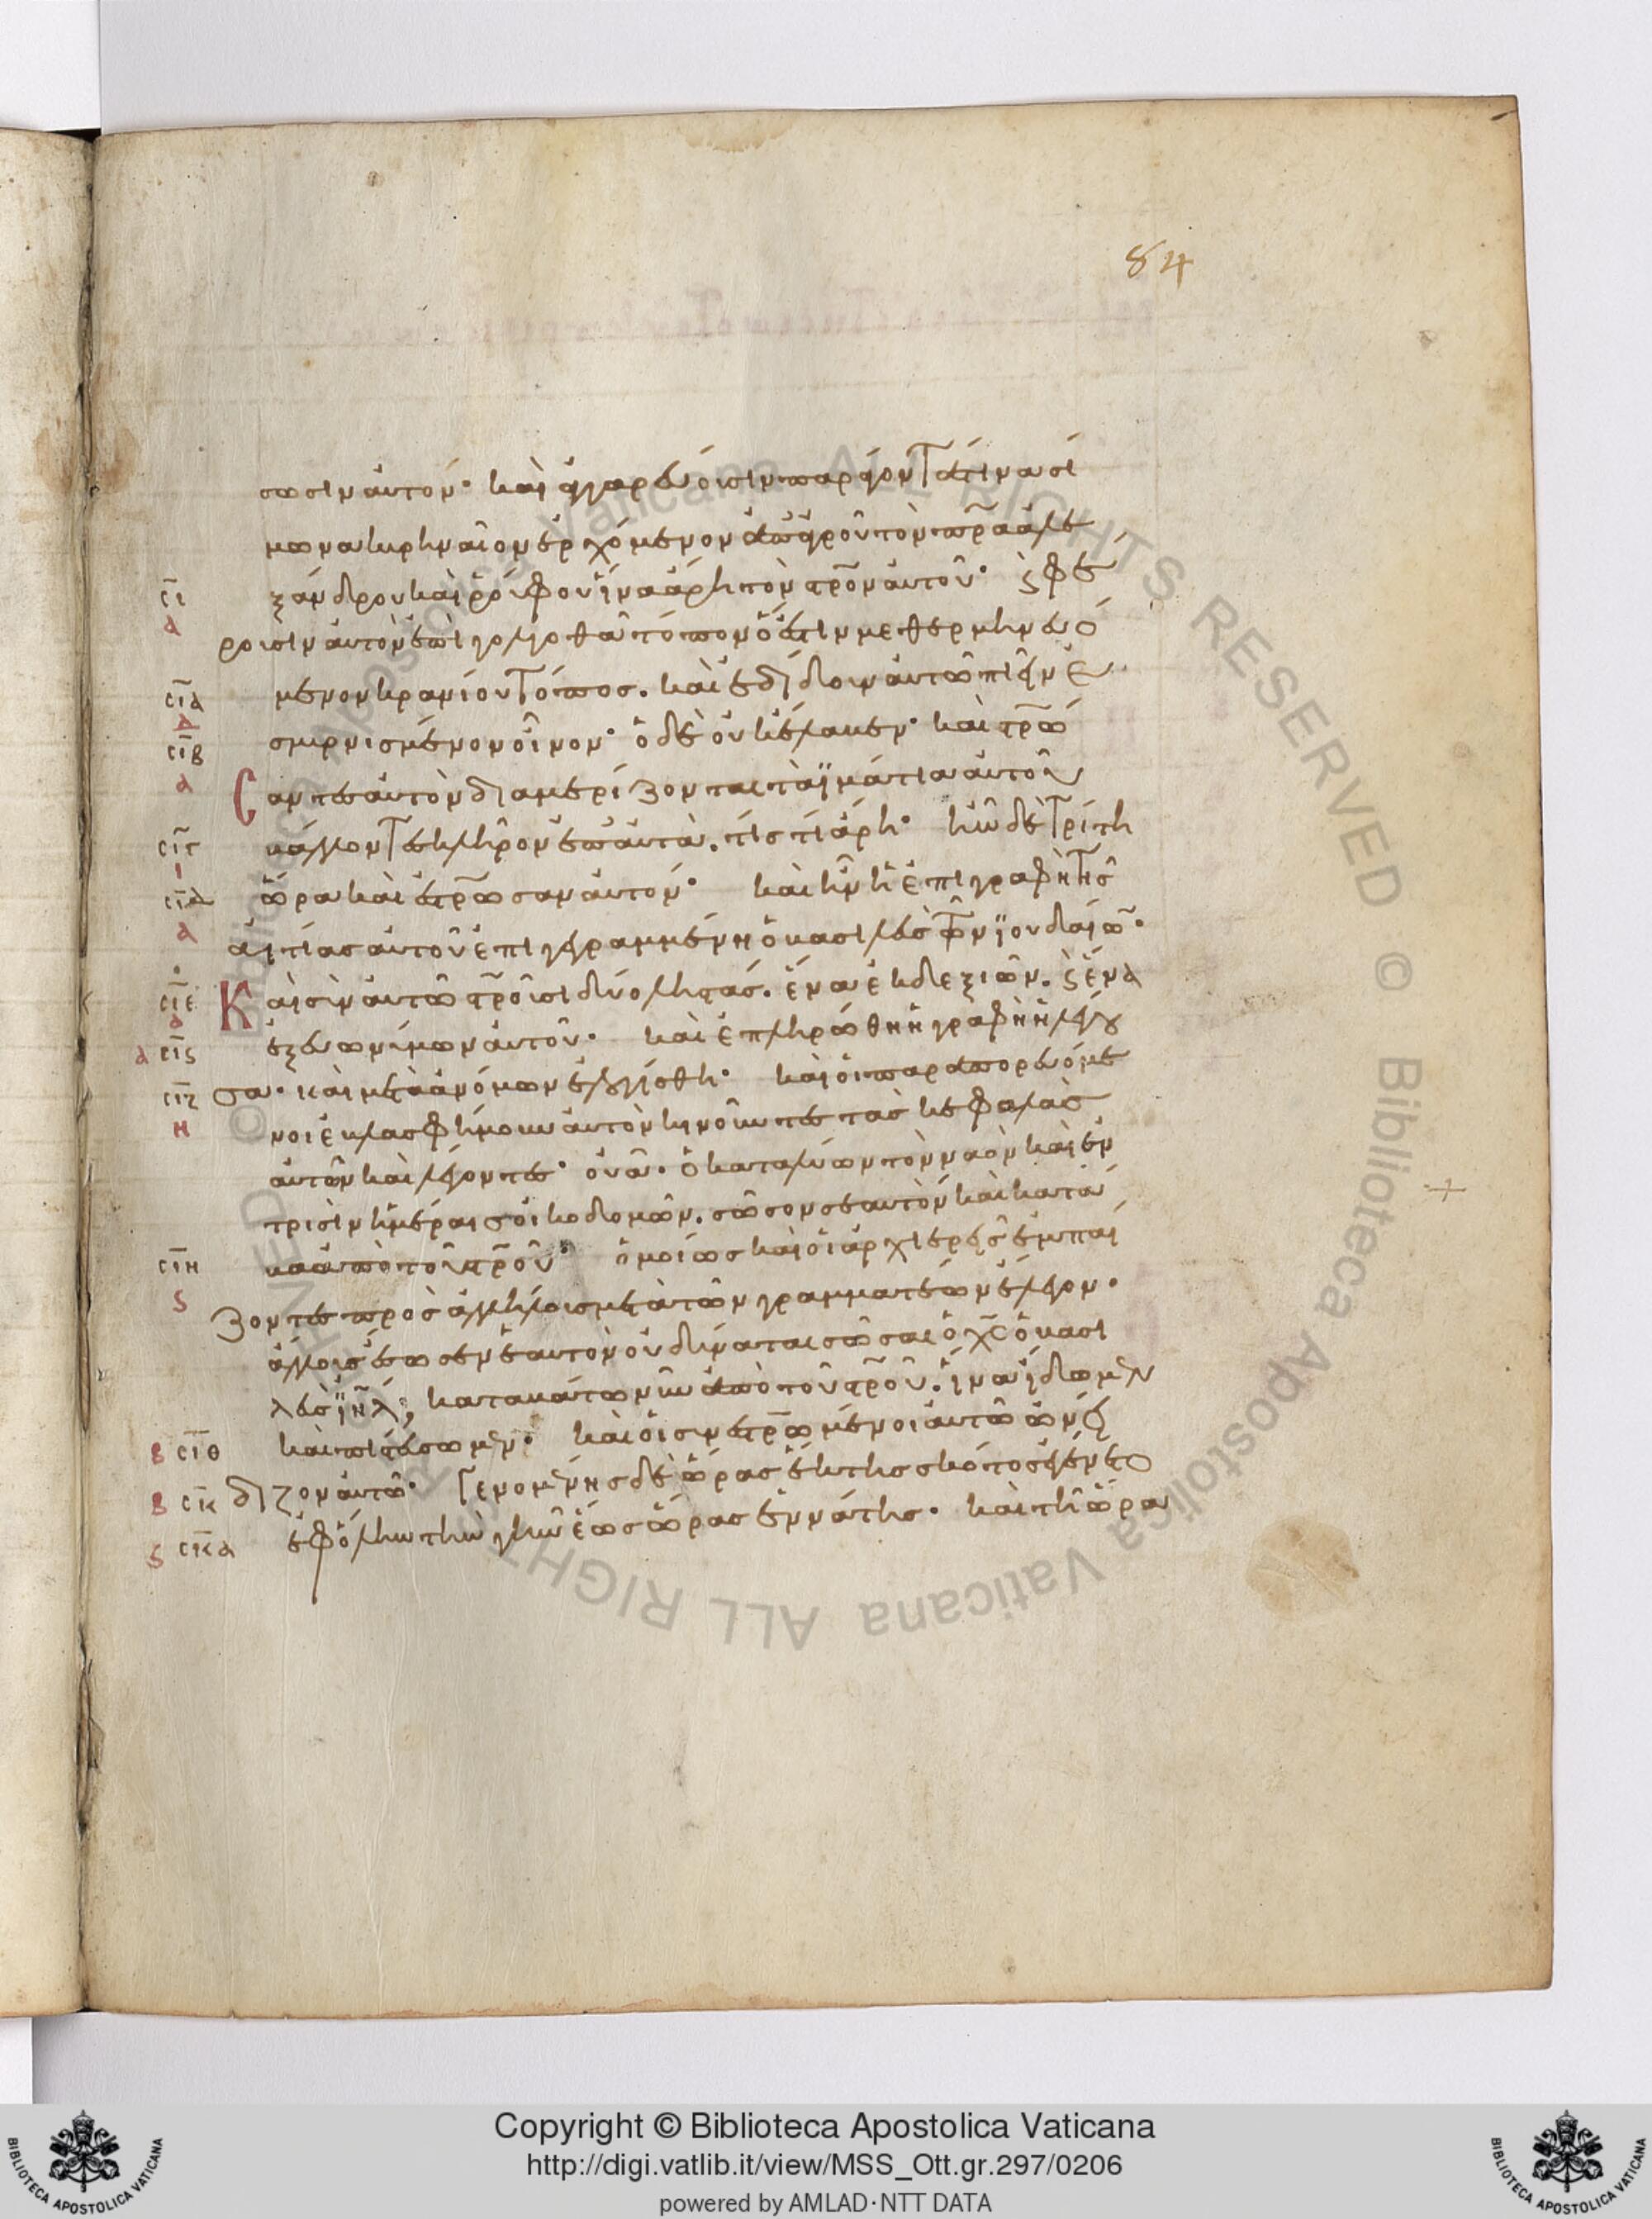 84
σωσιν αὐτόν· καὶ ἀγγαρεύουσιν παράγοντά τινα σί
μωνα κυρηναῖον ἐρχόμενον ἀπ' ἀγροῦ τὸν πρ̅α ἀλε
ξάνδρου καὶ ῥούφου ἵνα ἄρῃ τὸν στρ̅ον αὐτοῦ· ϛ φέ
ρουσιν αὐτὸν ἐπὶ γολγοθᾶ τόπον ὅ ἐστιν μεθερμηνευό
μενον κρανίου τόπος. καὶ ἐδίδουν αὐτῶ πιεῖν ἐ
σμυρνισμένον οἶνον· ὁ δὲ οὐκ ἔλαβεν· καὶ στρ̅ώ
σαντες αὐτὸν διαμερίζονται τὰ ϊμάτια αὐτοῦ
βάλλοντες κλῆρον ἐπ' αὐτὰ. τίς τί ἄρῃ· ἦν δὲ τρίτη
ὥρα καὶ ἐστρ̅ωσαν αὐτόν· καὶ ἦν ἡ ἐπιγραφὴ τῆς
αἰτίας αὐτοῦ ἐπιγεγραμμένη ὁ βασιλεὺς τῶν ϊουδαίω̅·
Καὶ σὺν αὐτῶ στρ̅οῦσι δύο ληστάς. ἕνα ἐκ δεξιῶν. ϛ ἕνα
ἐξ εὐωνύμων αὐτοῦ· καὶ ἐπληρώθη ἡ γραφὴ ἡ λέγου
σα· καὶ μετὰ ἀνόμων ἐλογίσθη· καὶ οἱ παραπορευόμε
νοι ἐβλασφήμουν αὐτὸν κινοῦντες τὰς κεφαλὰς
αὐτῶν καὶ λέγοντες· οὐᾶ· ὁ καταλύων τὸν ναὸν καὶ ἐν
τρισὶν ἡμέραις οἰκοδομῶν. σῶσον σεαυτὸν καὶ κατά
βα ἀπὸ τοῦ στρ̅οῦ· ὁμοίως καὶ οἱ ἀρχιερεῖς ἐμπαί
ζοντες πρὸς ἀλλήλους μετὰ τῶν γραμματέων ἔλεγον·
ἄλλους ἔσωσεν ἑαυτὸν οὐ δύναται σῶσαι ὁ χ̅ς ὁ βασι
λεὺς ϊη̅λ; καταβάτω νῦν ἀπὸ τοῦ στρ̅οῦ. ἵνα ἴδωμεν
καὶ πιστεύσωμεν· καὶ οἱ συνεστρ̅ωμένοι αὐτῶ ὠνεί
διζον αὐτῶ· Γενομένης δὲ ὥρας ἕκτης σκότος ἐγένετο
ἐφ' ὅλην τὴν γῆν ἕως ὥρας ἐννάτης· καὶ τῇ ὥρα
σι̅
α
σι̅α
α
σι̅β
α
σι̅γ
ι
σι̅δ
α
σι̅ε
α
α σι̅ϛ
σι̅ζ
η
σι̅η
ϛ
β σι̅θ
β σκ̅
ϛ σκ̅α
Copyright © Biblioteca Apostolica Vaticana
http://digi.vatlib.it/view/MSS_Ott.gr.297/0206
powered by AMLAD·NTT DATA
BIBLIOTECA APOSTOLICA VATICANA
BIBLIOTECA APOSTOLICA VATICANA
© Biblioteca Apostolica Vaticana ALL RIGHTS RESERVED © Biblioteca Apostolica Vaticana ALL RIGHTS RESERVED